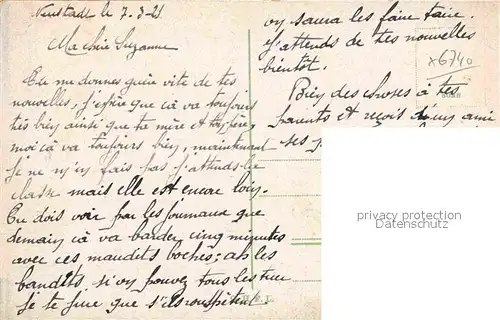 Neustadt le 7-3-21
Ma chère Suzanne
Tu me donnes guère vite de tes
nouvelles, j'espère que cà va toujours
très bien ainsi que ta mère et ton père,
moi cà va toujours bien, maintenant
je ne m'y fais pas j'attends la
classe mais elle est encore loin.
Tu dois voir par les journaux que
demain cà va barder cinq minutes
avec ces maudits boches; ah les
bandits. si on pouvez tous les tuer
je te jure que s'ils rouspètent
on saura les faire taire.
J'attends de tes nouvelles
bientôt.
Bien des choses à tes
parents et reçois d'un ami
ses
X6740
privacy protection
Datenschutz